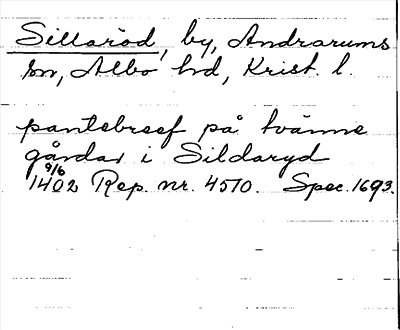 Sillaröd, by, Andrarums
sn, Albo hd, Krist. l.
pantebreef på tvänne
gårdar i Sildaryd
9/6
1402 Rep. nr. 4510. Spec. 1693.